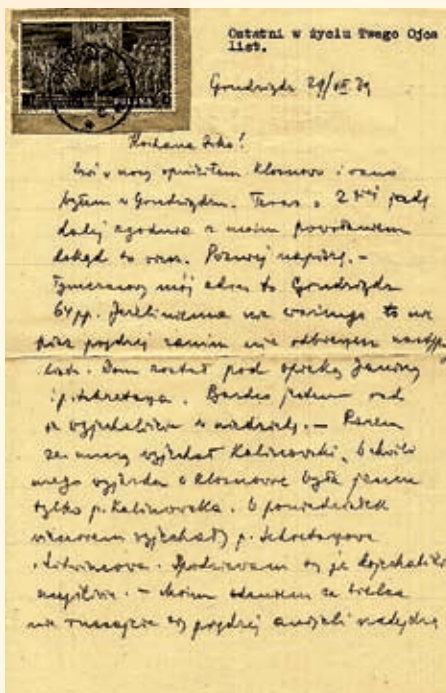 POLSKA
Ostatni w życiu Twego Ojca
list.
Grudziądz 29/VIII 39
Kochana Irko!
Dziś w nocy opuściłem Klosnowo i rano
byłem w Grudziądzu. Teraz o 2 jadę
dalej zgodnie z moim powołaniem
dokąd to wiesz. Później napiszę. —
Tymczasowy mój adres to Grudziądz
64 pp. Jeśli niema nic ważnego to nie
pisz prędzej zanim nie odbierzesz następny
list. Dom został pod opieką Janiny
i p. Sekretarza. Bardzo jestem rad
że wyjechaliście w niedzielę. — Razem
ze mną wyjechał Kalinowski. W chwili
mego wyjazdu w Klosnowie była jeszcze
tylko p. Kalinowska. W poniedziałek
wieczorem wyjechały p. Sekretarzowa
i. Spodziewam się że dojechaliście
szczęśliwie. — Moim zdaniem ze
nie ruszajcie się prędzej aniżeli nadejdzie